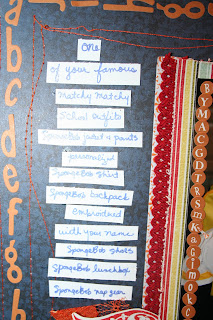 One
of your famous
Matchy Matchy
School outfits
SpongeBob jacket & pants
personalized
SpongeBob shirt
SpongeBob backpack
Embroidered
with your name
SpongeBob shoes
SpongeBob lunchbox
SpongeBob nap gear
b
c
d
e
f
g
B
Y
M
A
C
G
D
T
R
S